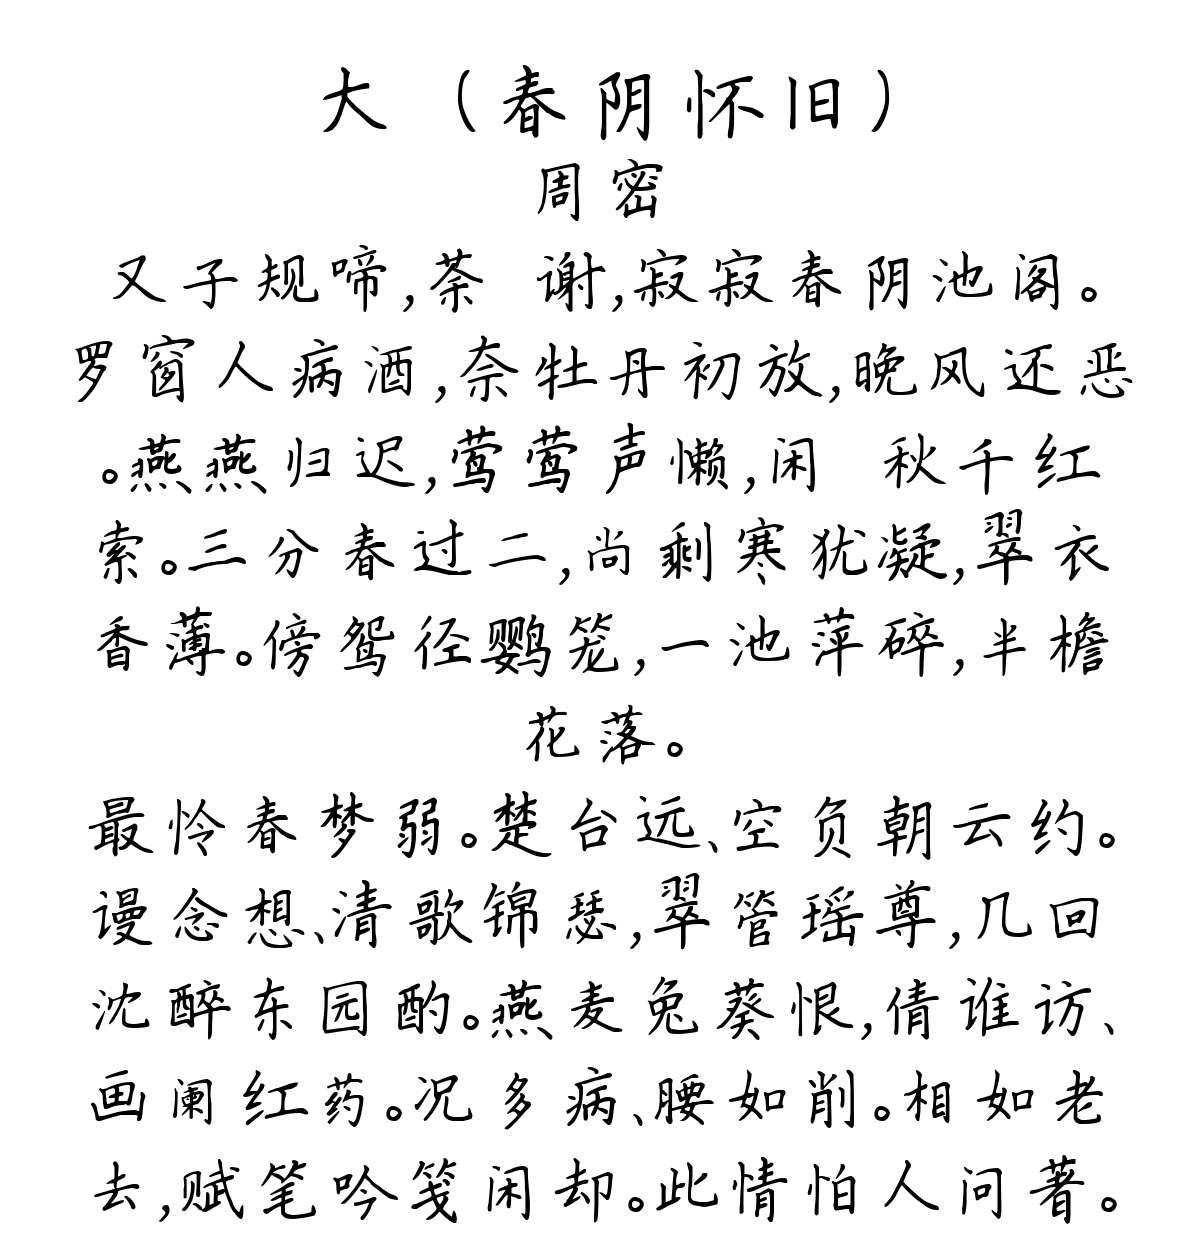 大 （春阴怀旧）
周密
又子规啼,荼 谢,寂寂春阴池阁。
罗窗人病酒,奈牡丹初放,晚风还恶
。燕燕归迟,莺莺声懒,闲 秋千红
索。三分春过二,尚剩寒犹凝,翠衣
香薄。傍鸳径鹦笼,一池萍碎,半檐
花落。
最怜春梦弱。楚台远、空负朝云约。
谩念想、清歌锦瑟,翠管瑶尊,几回
沈醉东园酌。燕麦兔葵恨,倩谁访、
画阑红药。况多病、腰如削。相如老
去,赋笔吟笺闲却。此情怕人问著。